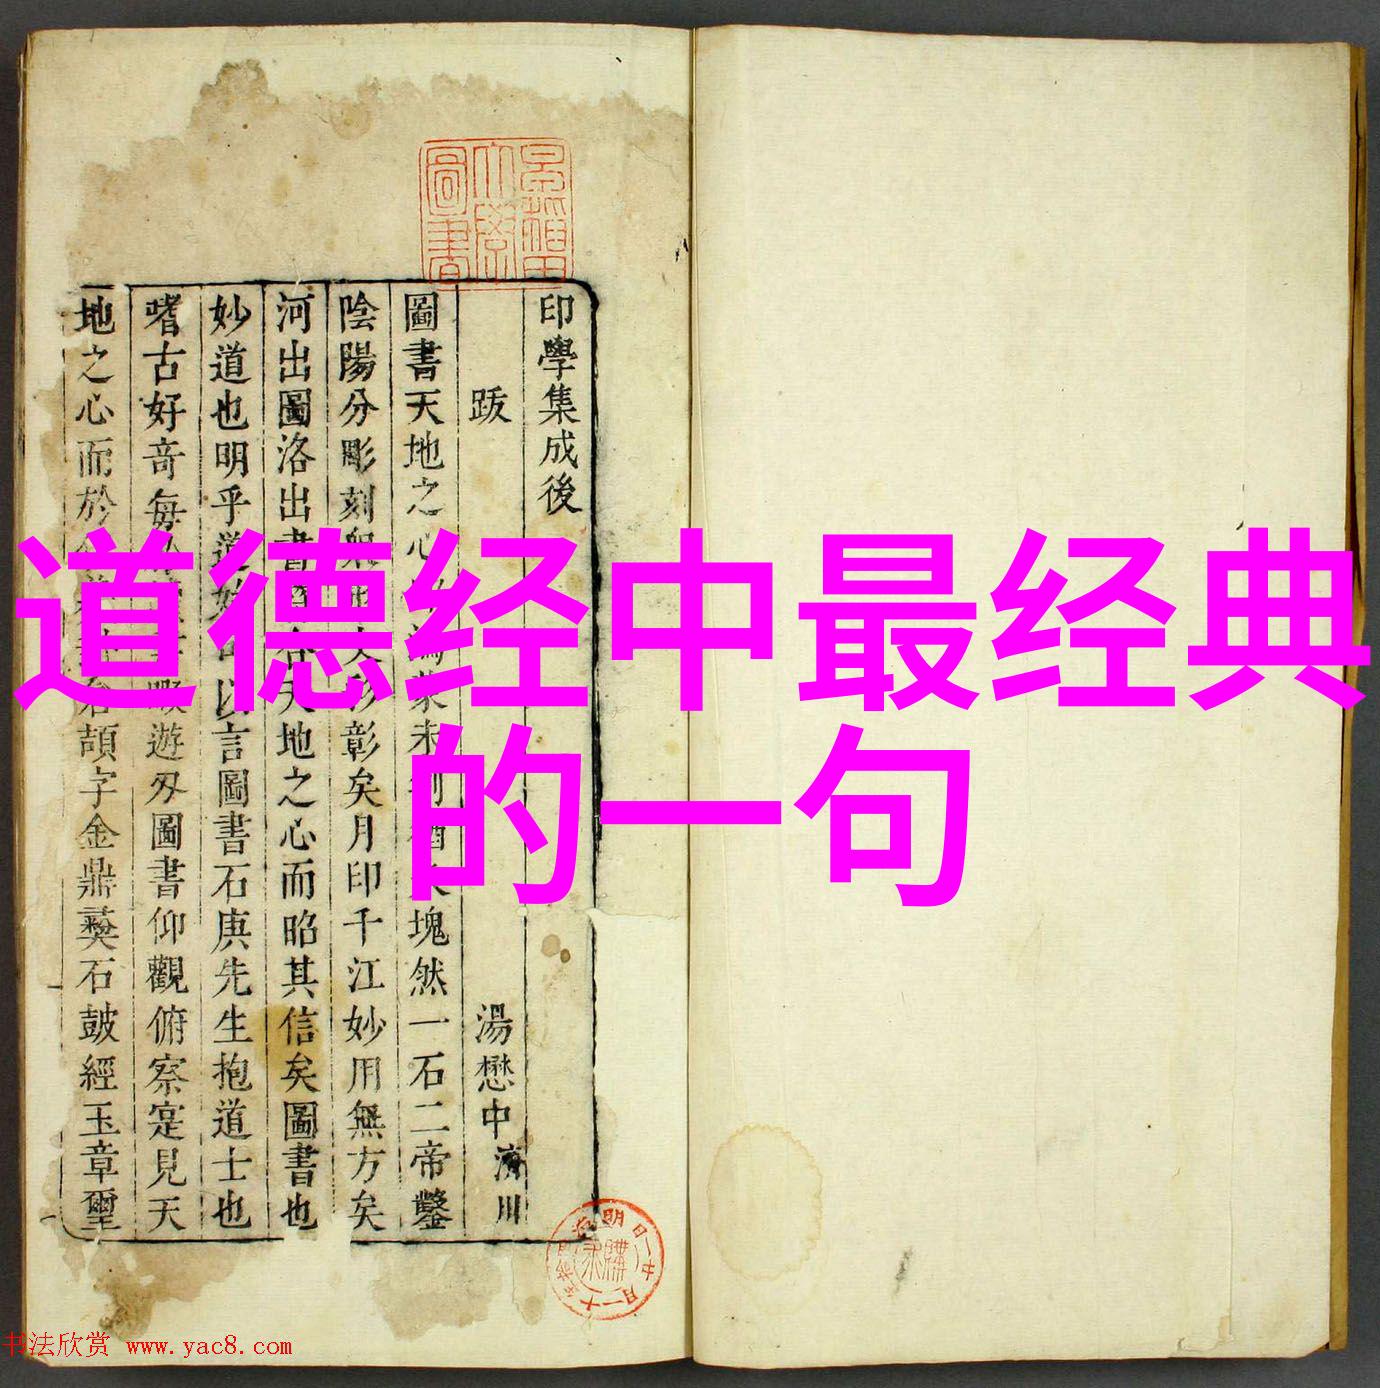 道德经中最经典
的一句
印學集成後
跋 湯懋中 濟川
圖書天地之心 塊然一石二帝鑿
陰陽分彫刻 彰矣月印千江妙用無方矣
河出圖洛出書 天地之心而昭其信矣圖書也
妙道也明乎道 以言圖書石庚先生抱道士也
嗜古好奇每 暇遊刃圖書仰觀俯察寔見天
地之心而於 頡字金鼎彝石鼓經玉章璽
書法欣赏 www.yac8.com